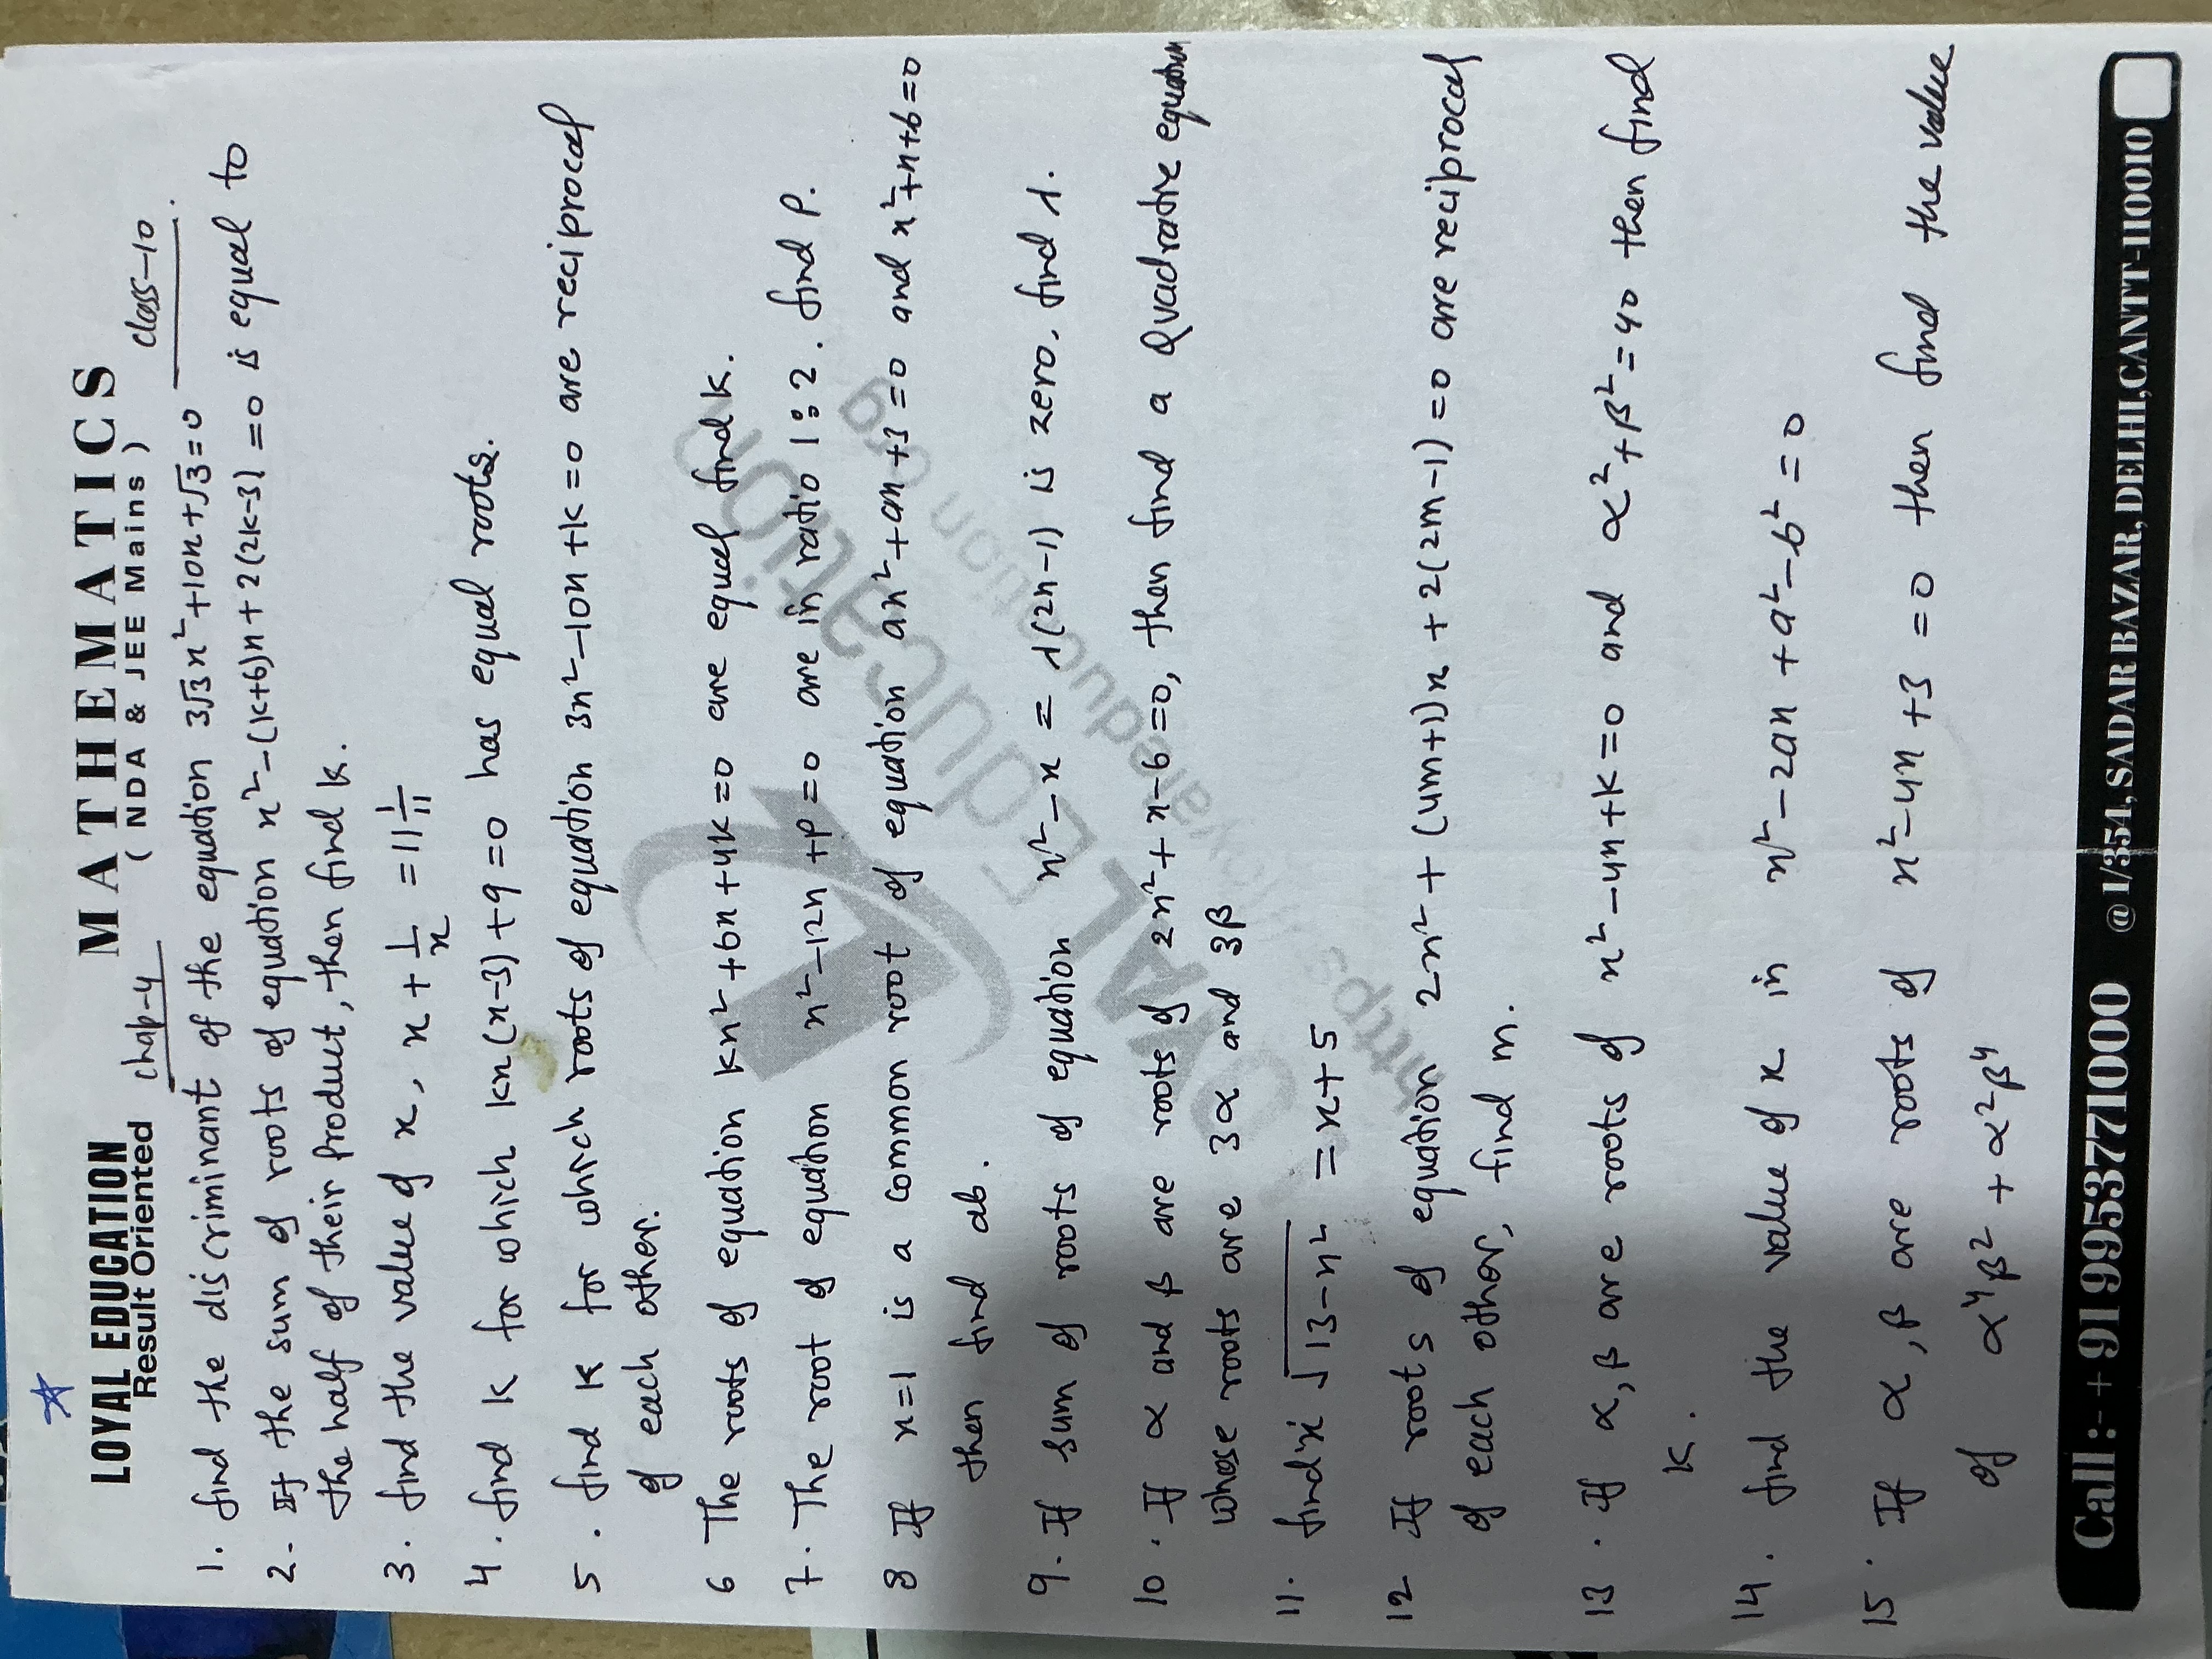 LOYAL EDUCATION
Result Oriented
MATHEMATICS
( NDA & JEE Mains )
chap-4
class-10.
1. find the discriminant of the equation 3√3x²+10x+√3=0
2- If the sum of roots of equation x²-(k+6)x+2(2k-3)=0 is equal to
the half of their product, then find k.
3. find the value of x, x+1/x = 11 1/11
4. find k for which kx(x-3)+9=0 has equal roots.
5. find k for which roots of equation 3x²-10x+k=0 are reciprocal
of each other.
6 The roots of equation kx²+6x+4k=0 are equal find k.
7. The root of equation x²-12x+p=0 are in ratio 1:2. find p.
8 If x=1 is a common root of equation ax²+ax+3=0 and x²+x+b=0
then find ab.
9. If sum of roots of equation x²-x = λ(2x-1) is zero. find λ.
10. If α and β are roots of 2x²+x-6=0, then find a Quadratic equation
whose roots are 3α and 3β
11. find x √13-x² = x+5
12 If roots of equation 2x²+(4m+1)x+2(2m-1)=0 are reciprocal
of each other, find m.
13. If α,β are roots of x²-4x+k=0 and α²+β²=40 then find
k.
14. find the value of x in x²-2ax+a²-b²=0
15. If α,β are roots of x²-4x+3=0 then find the value
of α⁴β²+α²β⁴
LOYAL Education
https
loyaleducation.org
Call :- +91 9953771000 @ 1/354, SADAR BAZAR, DELHI, CANTT-110010